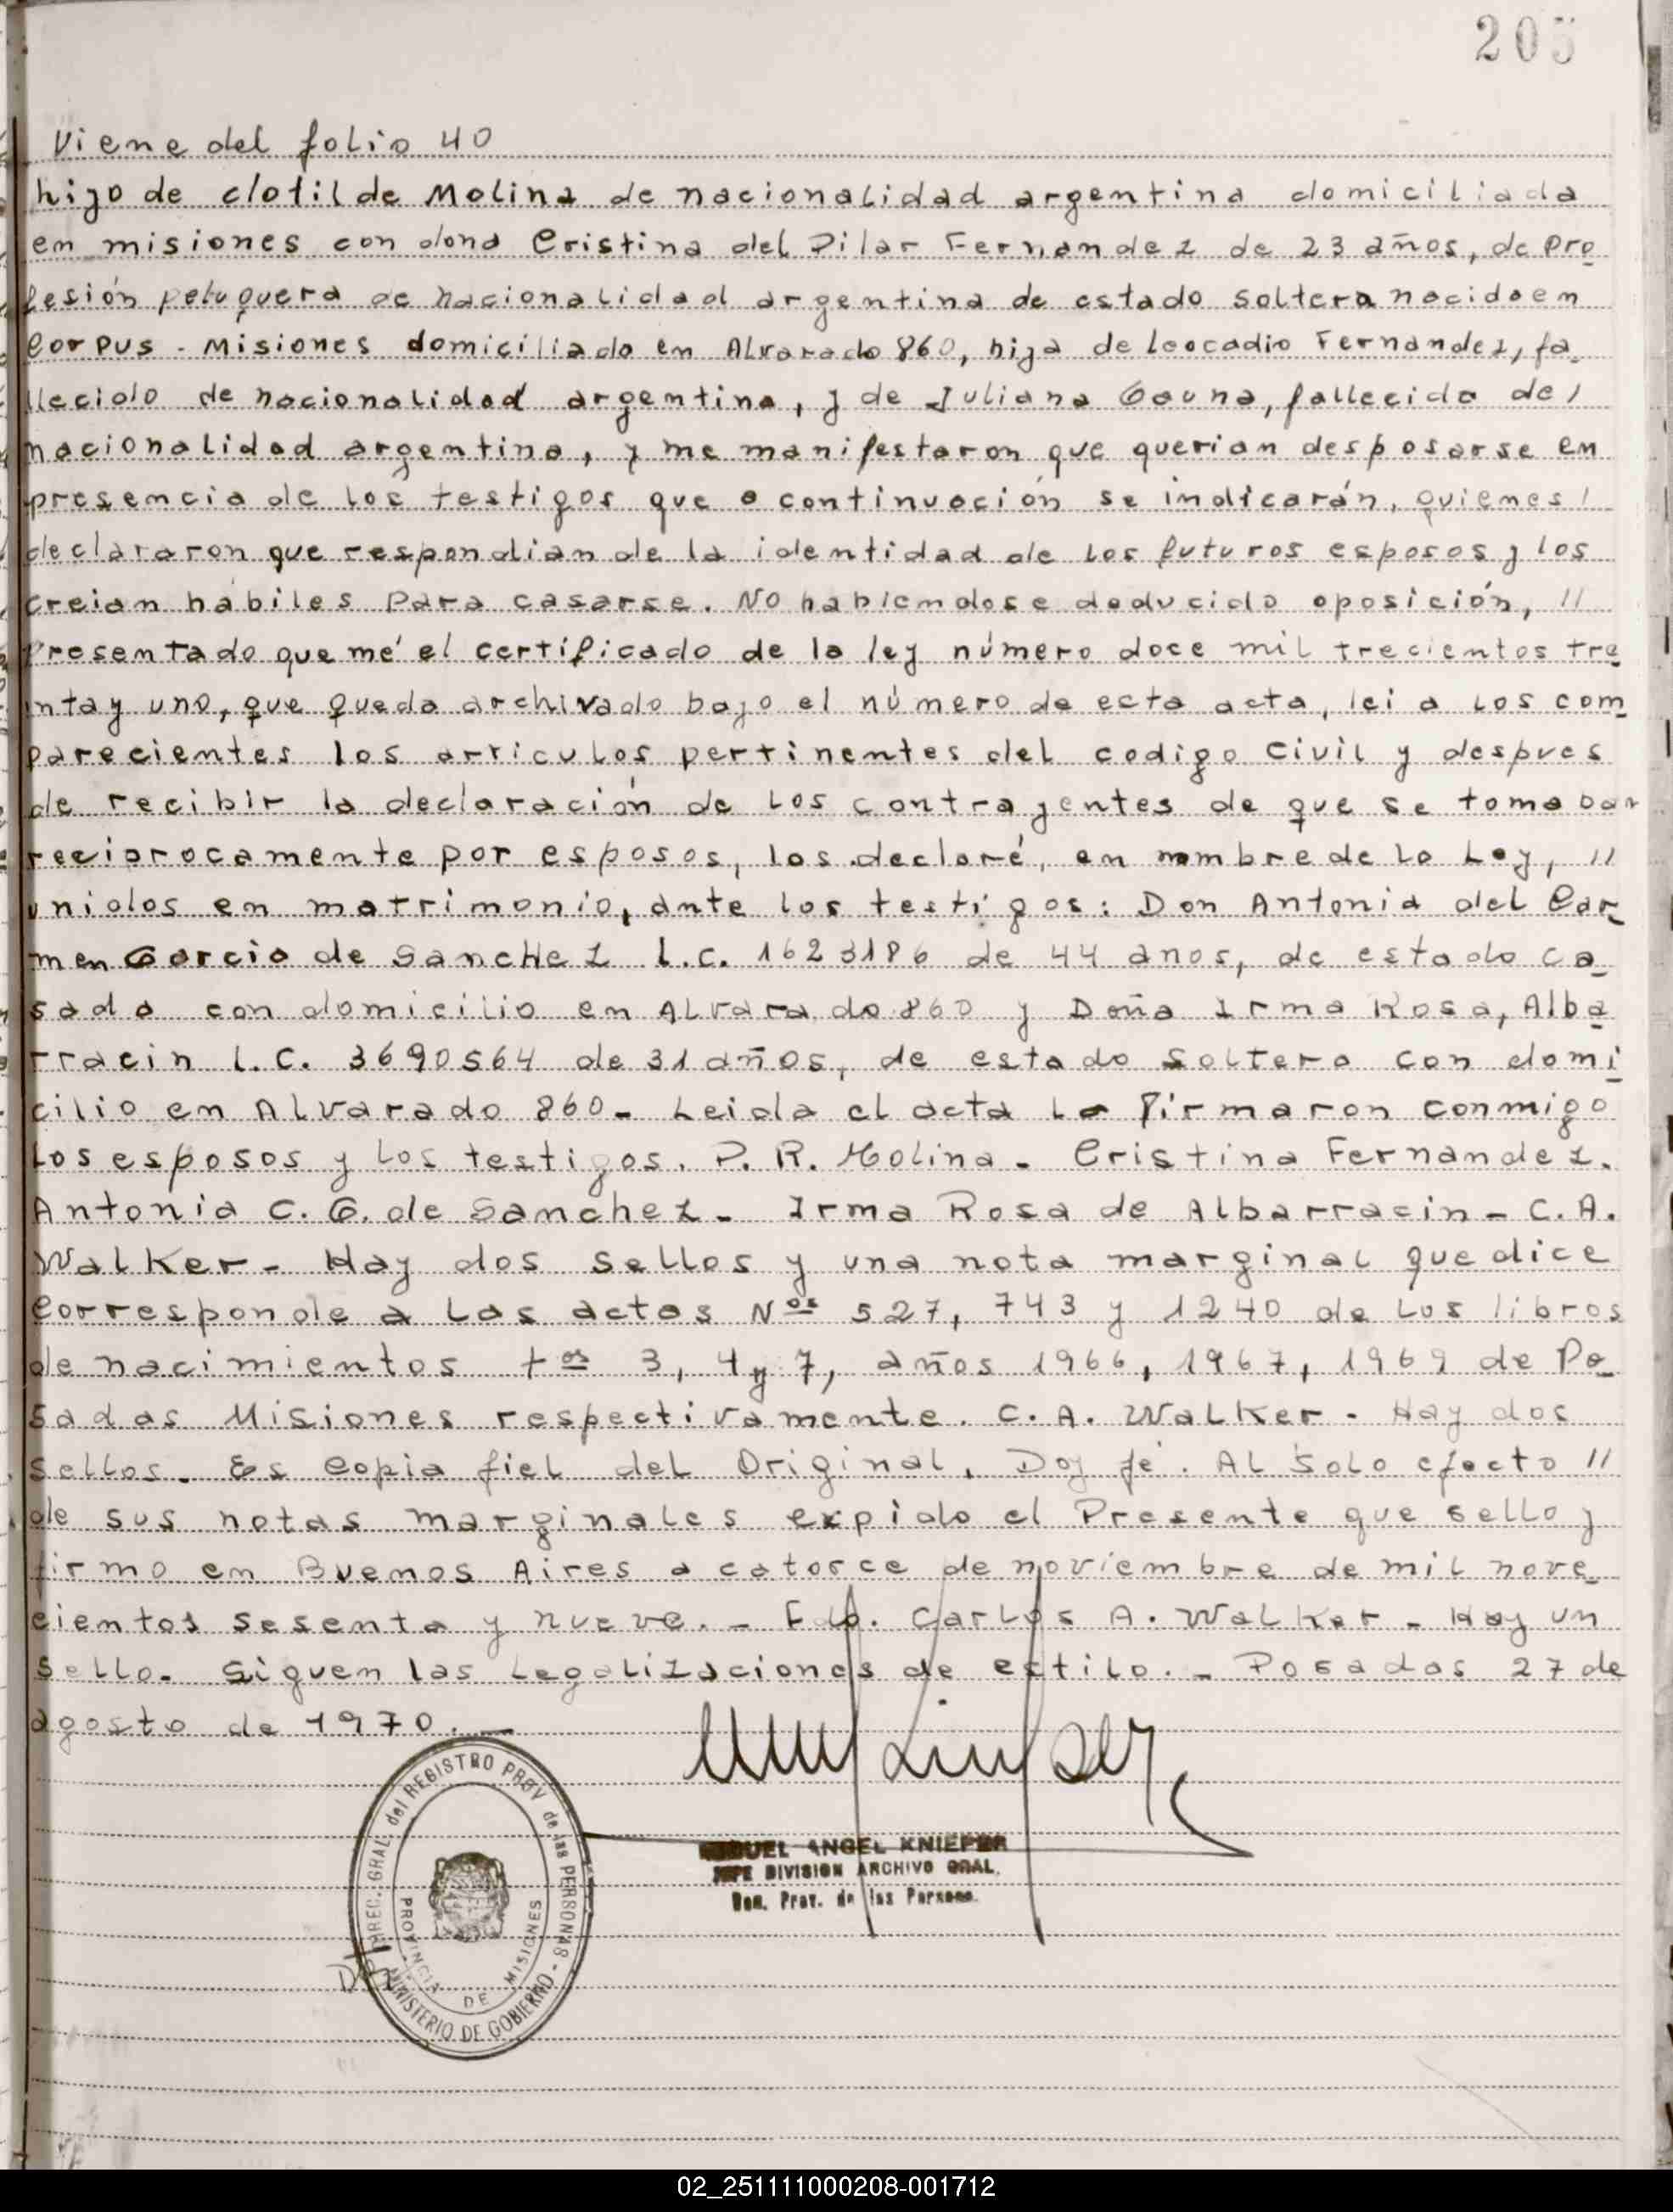 205
Viene del folio 40
hijo de clotilde Molina de nacionalidad argentina domiciliada
en misiones con dona Cristina del Pilar Fernandez de 23 años, de pro
fesión peluquera de nacionalidad argentina de estado soltera nacida en
Corpus - Misiones domiciliada en Alvarado 860, hija de Leocadio Fernandez, fa
llecido de nacionalidad argentina, y de Juliana Gauna, fallecida de /
nacionalidad argentina, y me manifestaron que querian desposarse en
presencia de los testigos que a continuación se indicarán, quienes /
declararon que respondian de la identidad de los futuros esposos y los
creian habiles para casarse. No habiendose deducido oposición, //
Presentado que mé el certificado de la ley número doce mil trecientos tre
inta y uno, que queda archivado bajo el número de esta acta, lei a los com
parecientes los articulos pertinentes del codigo Civil y despues
de recibir la declaración de los contrayentes de que se tomaban
reciprocamente por esposos, los declaré, en nombre de la Ley, //
unidos en matrimonio, ante los testigos: Don Antonia del Car
men Garcia de Sanchez L.C. 1623186 de 44 anos, de estado ca
sada con domicilio en Alvarado 860 y Doña Irma Rosa, Alba
rracin L.C. 3690564 de 31 años, de estado soltera con domi
cilio en Alvarado 860 - Leida el acta la firmaron conmigo
los esposos y los testigos. P. R. Molina - Cristina Fernandez.
Antonia C. G. de Sanchez - Irma Rosa de Albarracin - C. A.
Walker - Hay dos sellos y una nota marginal que dice
Corresponde a las actas Nos 527, 743 y 1240 de los libros
de nacimientos tos 3, 4 y 7, años 1966, 1967, 1969 de Po
sadas Misiones respectivamente. C. A. Walker - Hay dos
sellos. Es copia fiel del Original. Doy fé. Al Solo efecto //
de sus notas marginales expido el Presente que sello y
firmo en Buenos Aires a catorce de noviembre de mil nove
cientos sesenta y nueve. - Fdo. Carlos A. Walker - Hay un
sello. Siguen las Legalizaciones de estilo. - Posadas 27 de
agosto de 1970. -
DIREC. GRAL. del REGISTRO PROV de las PERSONAS - MINISTERIO DE GOBIERNO -
PROVINCIA DE MISIONES
MIGUEL ANGEL KNIEPER
JEFE DIVISION ARCHIVO GRAL.
Prov. de las Personas
02_251111000208-001712